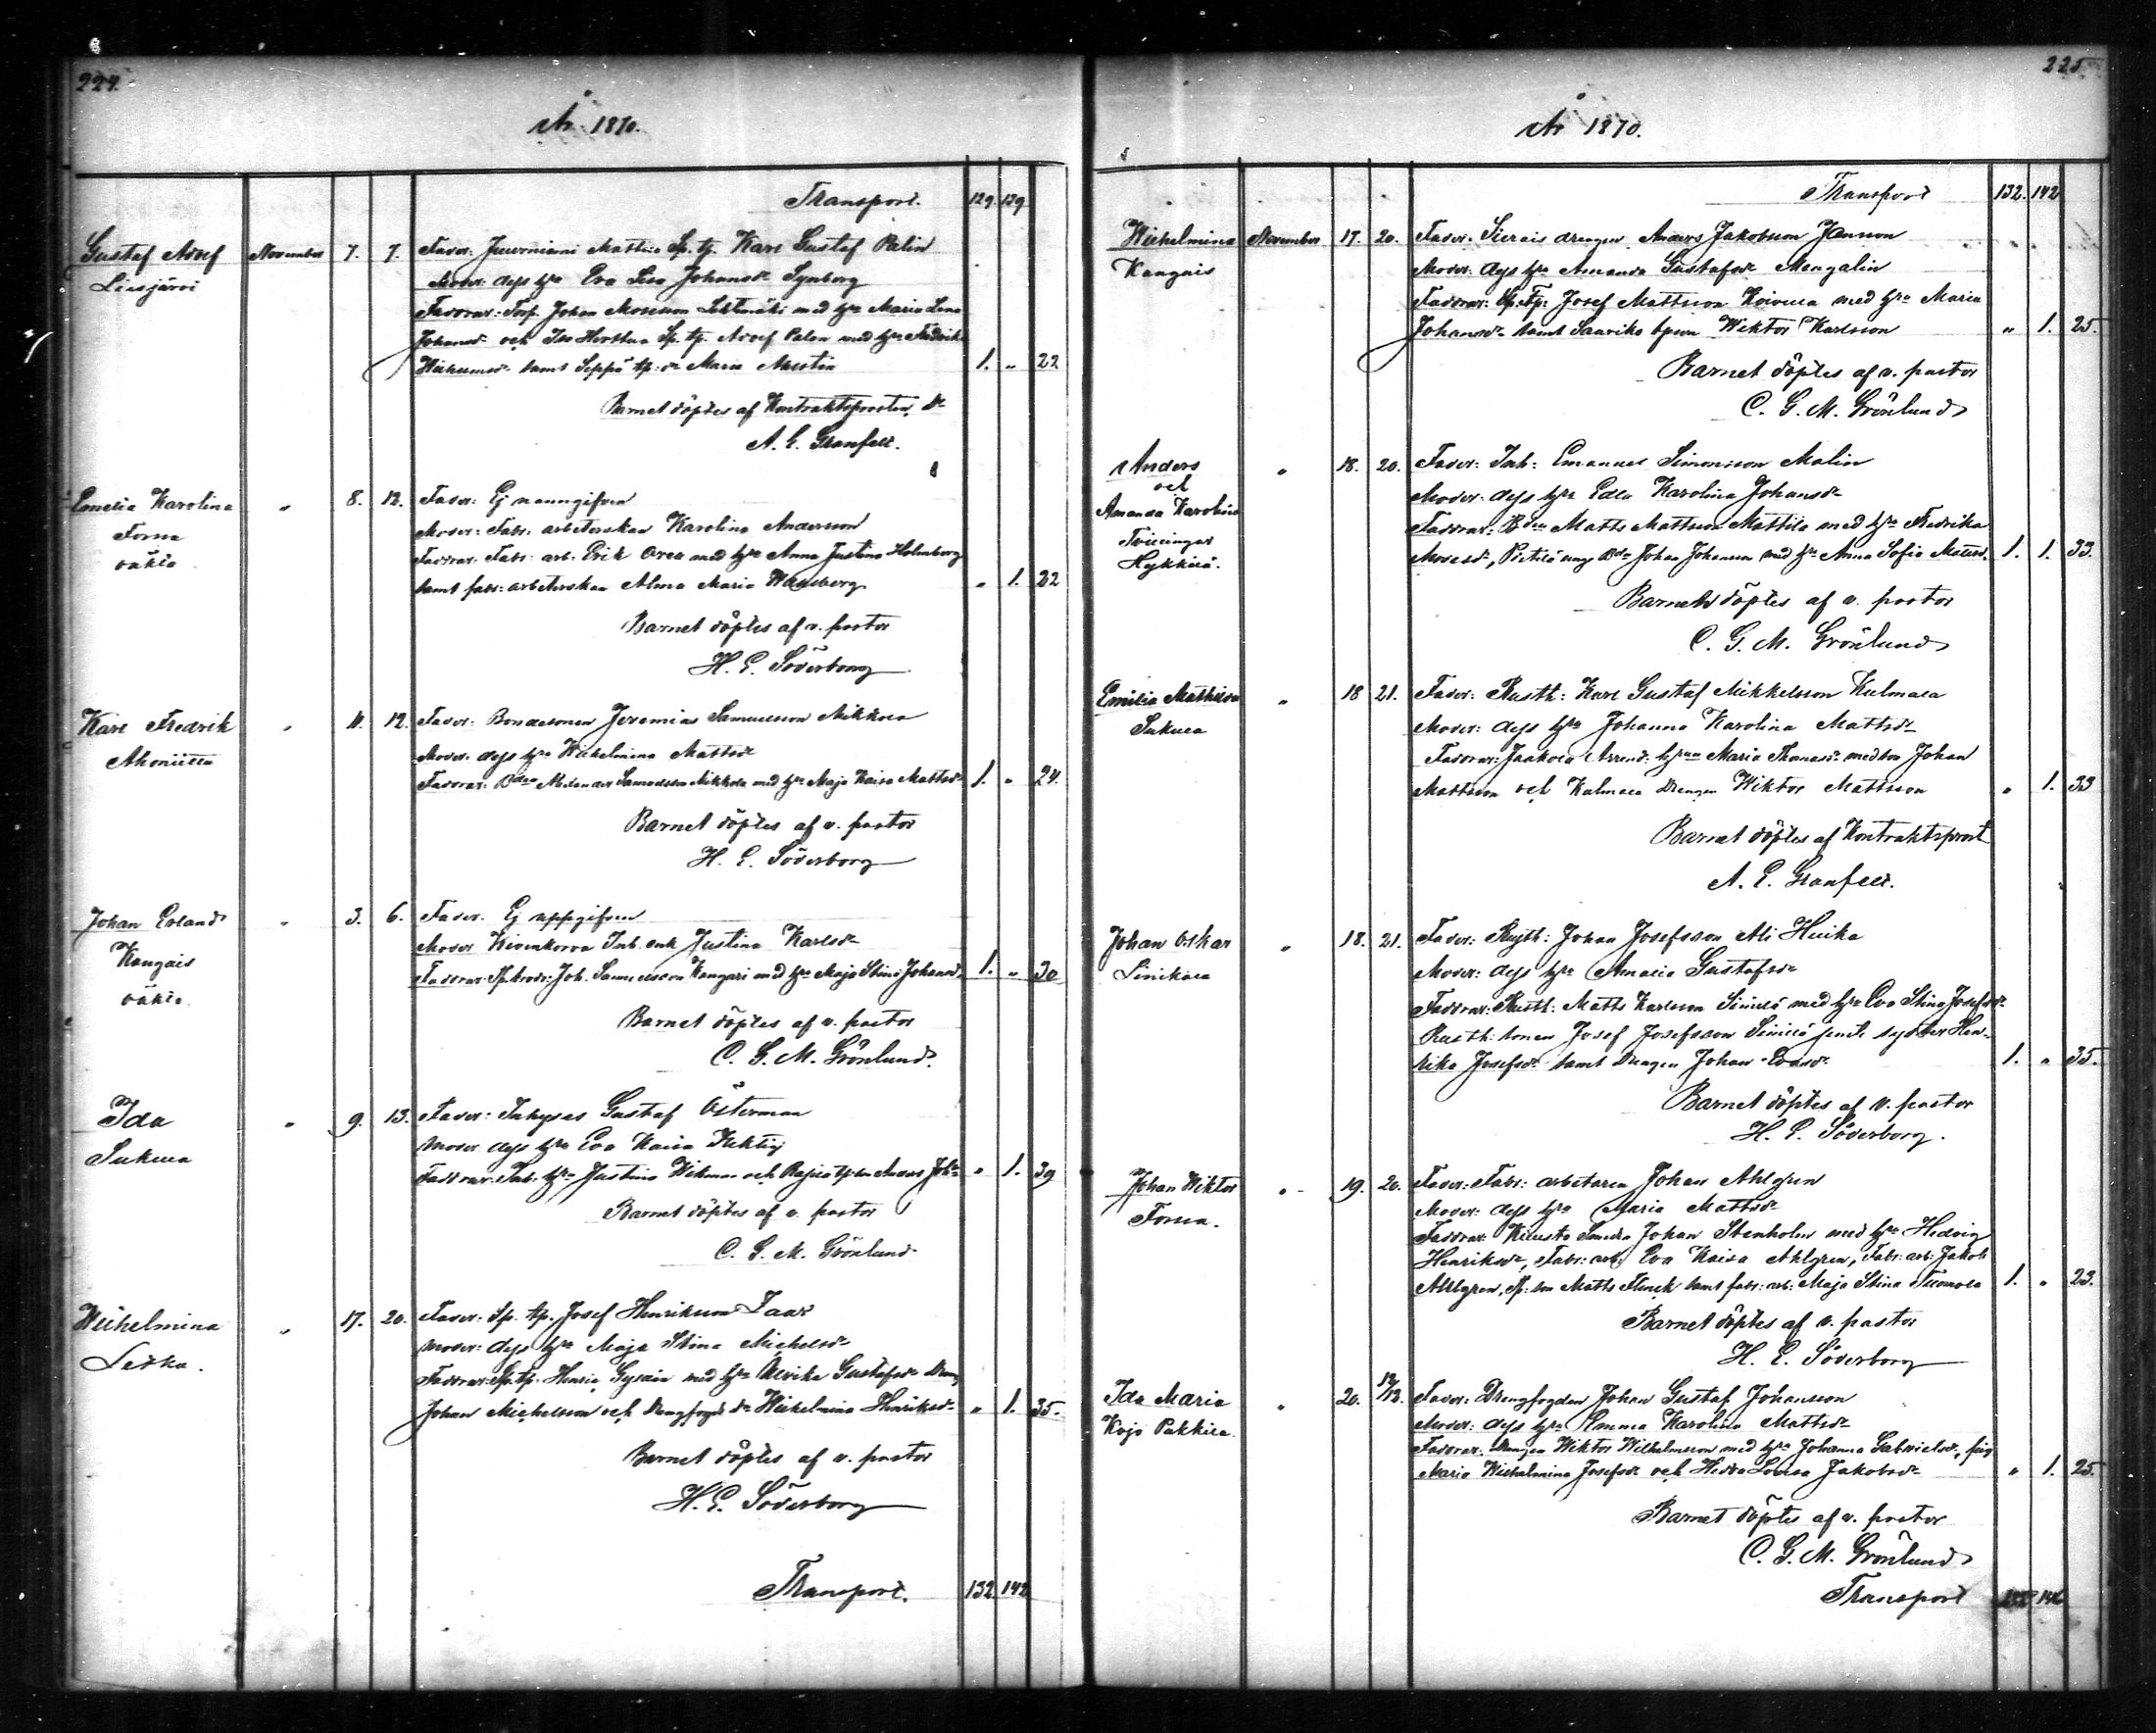 224.
År 1870.
Transport. 129. 139
Gustaf Adolf November 7. 7. Fader: Mattila Sp. tp. Karl Gustaf Palin
Liesjärvi Moder: dess h:u Eva Lisa Johansd:r Synberg
Faddrar: Torp. Johan Mosesson med h:u Maria Lena
Johansd:r och Sp. tp. Adolf Palen med h:u Fredrika
Wilhelmsd:r samt Seppä tp: d:r Maria 1. " 22
Barnet döptes af Kontraktsprosten, Dr
A. E. Granfelt.
Emelia Karolina " 8. 12. Fader: Ej namngifven
Forssa Moder: Fabr: arbeterskan Karolina Andersson
oäkta Faddrar: Fabr: arb: Erik Orea med h:u Anna Justina Holmberg
samt fabr: arbeterskan Alma Maria Wansberg " 1. 22
Barnet döptes af v. pastor
H. E. Söderborg
Karl Fredrik " 11. 12. Fader: Bondesonen Jeremias Samuelsson Mikkola
Ahoniitty Moder: dess h:u Wilhelmina Mattsd:r
Faddrar: B:den Samuelsson Mikkola med h:u Maja Kaisa Mattsd:r 1. " 24.
Barnet döptes af v. pastor
H. E. Söderborg
Johan Erland " 3. 6. Fader: Ej uppgifven
Kangais Moder: Inh. enk. Justina Karlsd:r
oäkta. Faddrar: Joh. Samuelsson Kangari med h:u Maja Stina Johansd:r 1. " 30
Barnet döptes af v. pastor
C. G. M. Grönlund.
Ida " 9. 13. Fader: Inhyses Gustaf Österman
Sukula Moder: dess h:u Eva Kaisa
Faddrar: Inh. h:u Justina Wikman och Anders Joh: " 1. 39
Barnet döptes af v. pastor
C. G. M. Grönlund
Wilhelmina " 17. 20. Fader: Sp. tp. Josef Henriksson Saar
Letku. Moder: dess h:u Maja Stina Michelsd:r
Faddrar: Sp. tp. Henric med h:u Ulrika Gustafsd:r Dreng
Johan Michelsson och Drengfogde d:r Wilhelmina Henriksd:r " 1. 35.
Barnet döptes af v. pastor
H. E. Söderborg
Transport. 132. 142
225.
År 1870.
Transport 132. 142
Wilhelmina November 17. 20. Fader: drengen Anders Jakobsson Jansson
Kangais Moder: dess h:u Amanda Gustafsd:r Mengalin
Faddrar: Sp. Tp: Josef Mattsson Koivula med h:u Maria
Johansd:r samt Saariko tpson Wiktor Karlsson " 1. 25.
Barnet döptes af v. pastor
C. G. M. Grönlund
Anders " 18. 20. Fader: Inh: Emanuel Simonsson Malin
och Moder: dess h:u Edla Karolina Johansd:r
Amanda Karolina Faddrar: B:den Matts Mattsson Mattila med h:u Fredrika
Tvillingar Mosesd:r, Pietilä B:de Johan Johansson med h:u Anna Sofia Mattsd. 1. 1. 33.
Hykkilä.
Barnet döptes af v. pastor
C. G. M. Grönlund
Emilia Mathilda " 18 21. Fader: Rusth: Karl Gustaf Mikkelsson Kulmala
Sukula Moder: dess h:u Johanna Karolina Mattsd:r
Faddrar: Jaakola Arrend. Maria Thomasd: med son Johan
Mattsson och Kulmala Drengen Wiktor Mattsson " 1. 33
Barnet döptes af Kontraktsprost
A. E. Granfelt.
Johan Oskar " 18. 21. Fader: Rusth: Johan Josefsson Ali Huika
Linikkala Moder: dess h:u Amalia Gustafsd:r
Faddrar: Rusth: Matts Karlsson Sinilä med h:u Eva Stina Josefsd:r
Rusth: sonen Josef Josefsson Sinilä jemte syster Hen-
rika Josefsd:r samt Drengen Johan Evasd: 1. " 35.
Barnet döptes af v. pastor
H. E. Söderborg.
Johan Wiktor " 19. 20. Fader: Fabr: arbetaren Johan Ahlgren
Forssa. Moder: dess h:u Maria Mattsd:r
Faddrar: Smeden Johan Stenholm med h:u Hedvig
Henriksd:r, Fabr: arb: Eva Kaisa Ahlgren, Fabr: arb: Jakob
Ahlgren, Sp: son Matts Flinck samt fabr: arb: Maja Stina Tuomola 1. " 23.
Barnet döptes af v. pastor
H. E. Söderborg
Ida Maria " 20. 12/12. Fader: Drengfogden Johan Gustaf Johansson
Kojo Pukkila Moder: dess h:u Emma Karolina Mattsd:r
Faddrar: Drengen Wiktor Wilhelmsson med h:u Johanna Gabrielsd:r, pig
Maria Wilhelmina Josefsd:r och Hedda Lovisa Jakobsd:r " 1. 25.
Barnet döptes af v. pastor
C. G. M. Grönlund
Transport 146